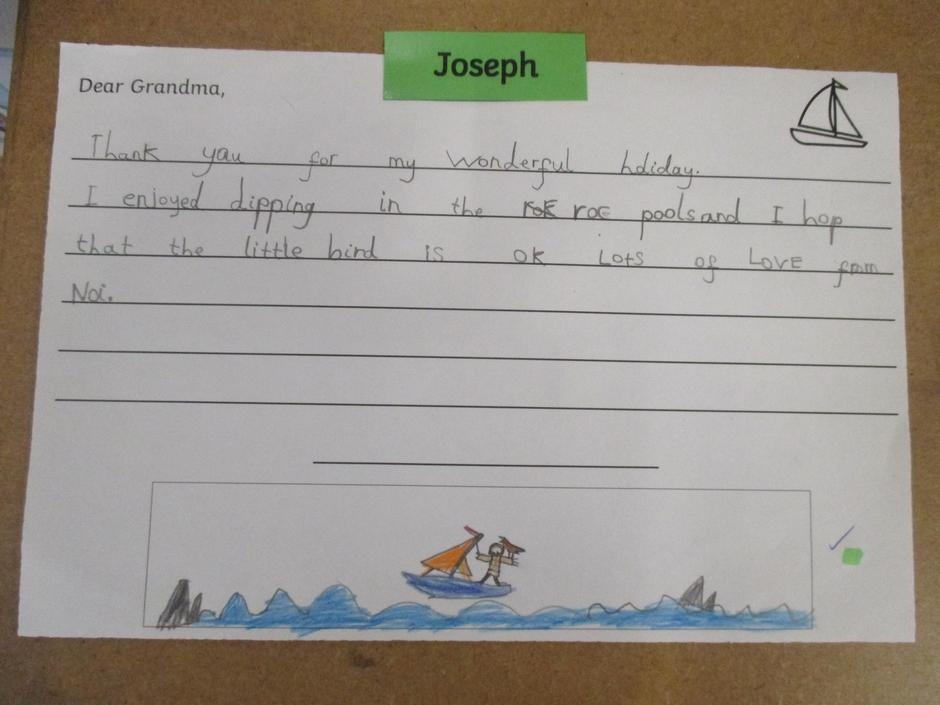 Joseph
Dear Grandma,
Thank yau for my wonderful hdiday.
I enjoyed dipping in the roc pools and I hop
that the little bird is ok Lots of LovE from
Noi.